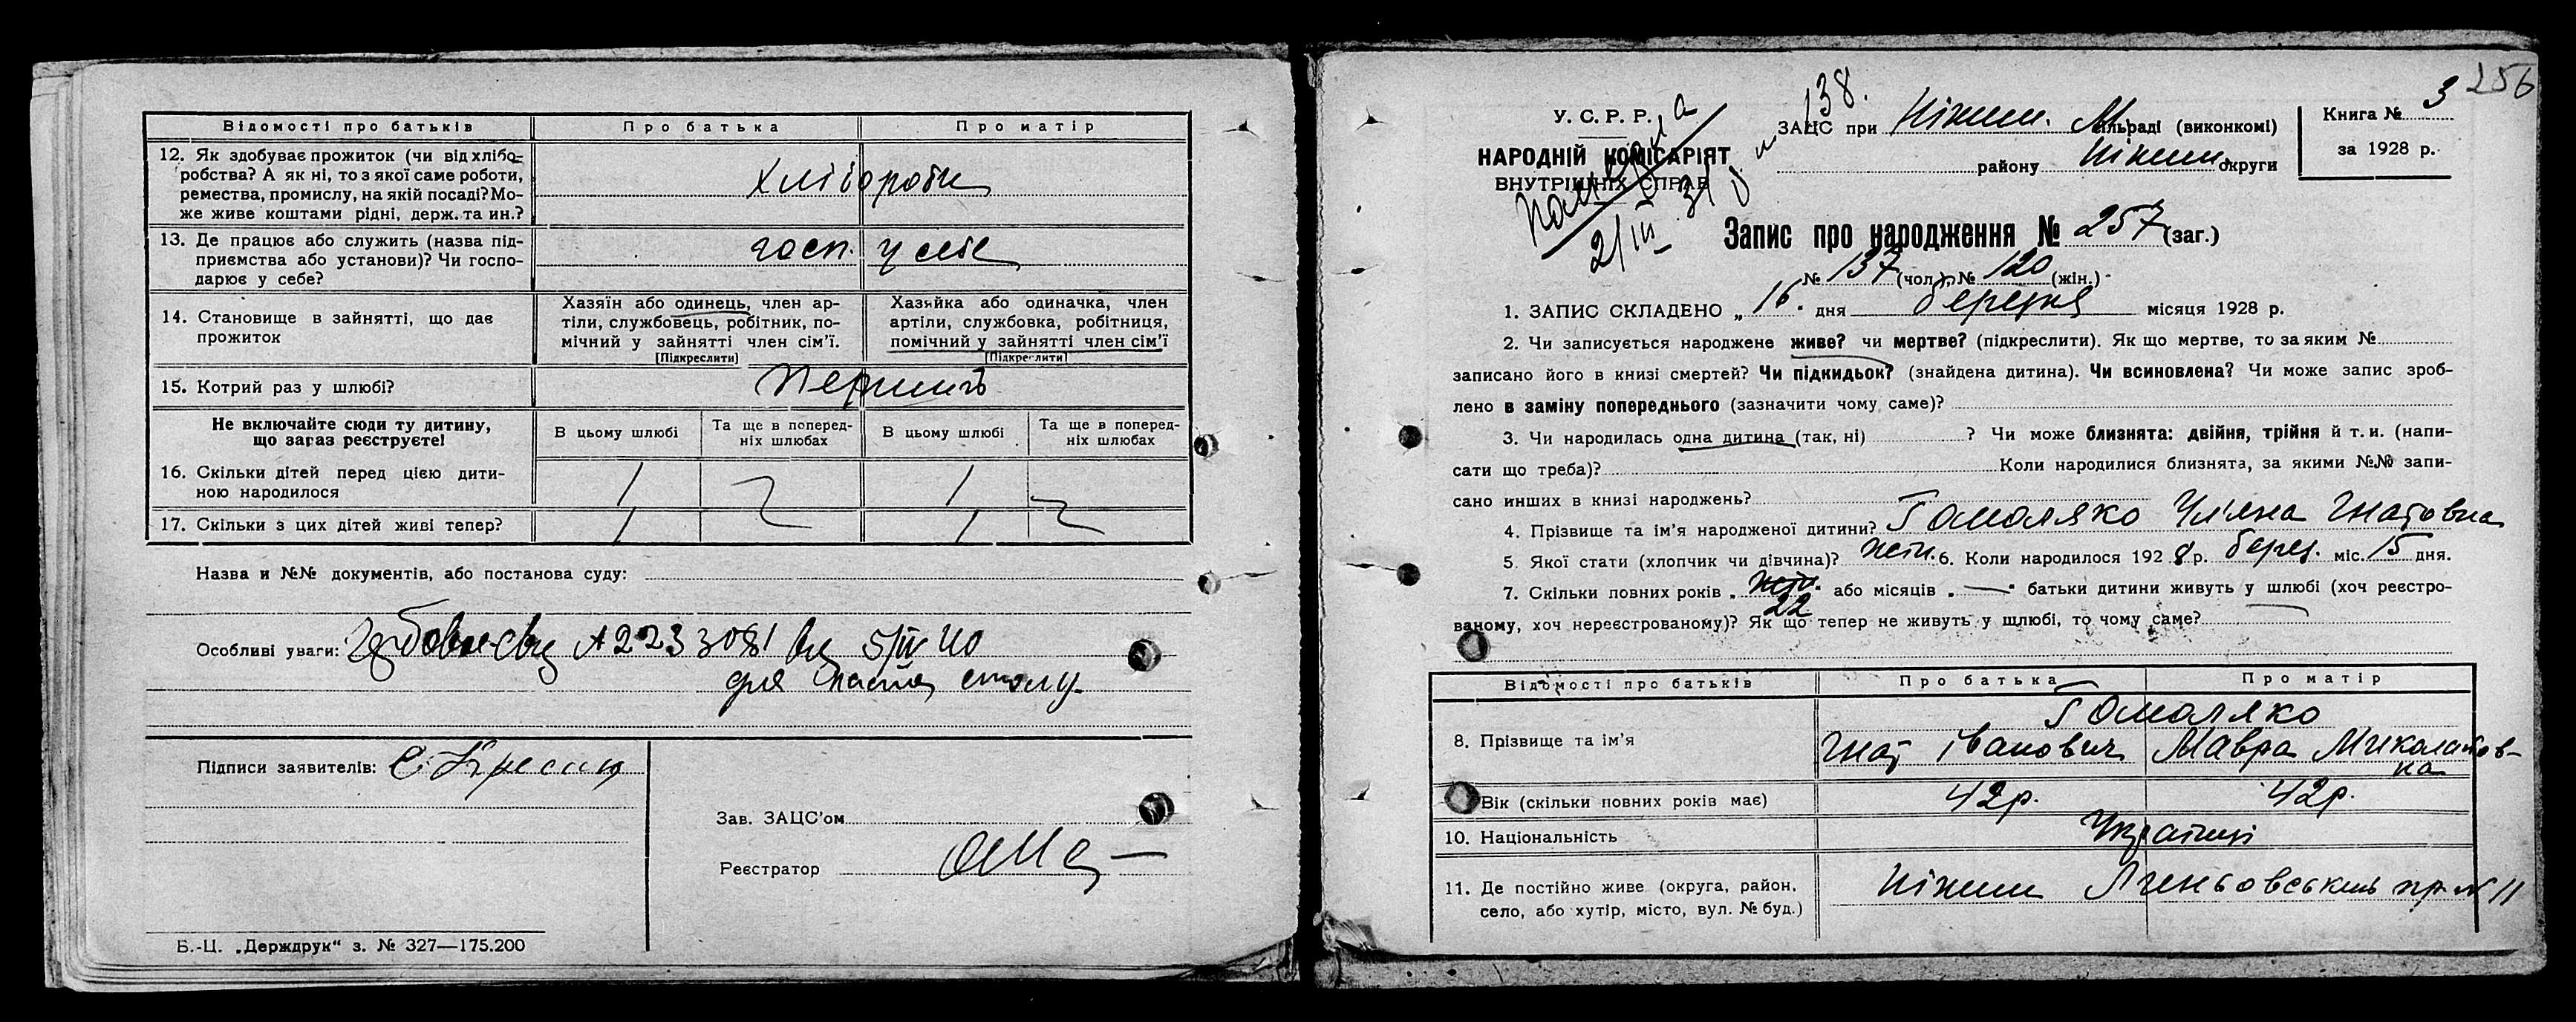 Відомості про батьків
Про батька
Про матір
12. Як здобуває прожиток (чи від хлібо-
робства? А як ні, то з якої саме роботи,
ремества, промислу, на якій посаді? Мо-
же живе коштами рідні, держ. та ин.?
хлібороби
13. Де працює або служить (назва під-
приємства або установи)? Чи госпо-
дарює у себе?
госп. у себе
14. Становище в зайнятті, що дає
прожиток
Хазяїн або одинець, член ар-
тіли, службовець, робітник, по-
мічний у зайнятті член сім'ї.
[Підкреслити]
Хазяйка або одиначка, член
артіли, службовка, робітниця,
помічний у зайнятті член сім'ї
[Підкреслити]
15. Котрий раз у шлюбі?
Не включайте сюди ту дитину,
що зараз реєструєте!
В цьому шлюбі
Та ще в поперед-
ніх шлюбах
В цьому шлюбі
Та ще в поперед-
ніх шлюбах
16. Скільки дітей перед цією дити-
ною народилося
1 1
17. Скільки з цих дітей живі тепер?
1 1
Назва и №№ документів, або постанова суду:
Особливі уваги:
5/IV 40
для
Підписи заявителів:
Зав. ЗАЦС'ом
Реєстратор
Б.-Ц. „Держдрук“ з. № 327—175.200
256
138.
У. С. Р. Р.
НАРОДНІЙ КОМІСАРІЯТ
ВНУТРІШНІХ СПРАВ
2/III 31
ЗАЦС при Ніжин. М. сільраді (виконкомі)
району Ніжин. округи
Книга № 3
за 1928 р.
Запис про народження № 257 (заг.)
№ 137 (чол.), № 120 (жін.)
1. ЗАПИС СКЛАДЕНО „ 16 “ дня березня місяця 1928 р.
2. Чи записується народжене живе? чи мертве? (підкреслити). Як що мертве, то за яким №
записано його в книзі смертей? Чи підкидьок? (знайдена дитина). Чи всиновлена? Чи може запис зроб-
лено в заміну попереднього (зазначити чому саме)?
3. Чи народилась одна дитина (так, ні) ? Чи може близнята: двійня, трійня й т. и. (напи-
сати що треба)? Коли народилися близнята, за якими №№ запи-
сано инших в книзі народжень?
4. Прізвище та ім'я народженої дитини? Гомоляко Уляна Гнатовна
5. Якої стати (хлопчик чи дівчина)? жін. 6. Коли народилося 1928 р. берез. міс. 15 дня.
7. Скільки повних років „ 22 “ або місяців „ — “ батьки дитини живуть у шлюбі (хоч реєстро-
ваному, хоч нереєстрованому)? Як що тепер не живуть у шлюбі, то чому саме?
Відомості про батьків
Про батька
Про матір
Гомоляко
8. Прізвище та ім'я
Гнат Іванович
Мавра Миколаєв-
на
Вік (скільки повних років має)
42р.
42р.
10. Національність
Українці
11. Де постійно живе (округа, район,
село, або хутір, місто, вул. № буд.)
Ніжин
№ 11